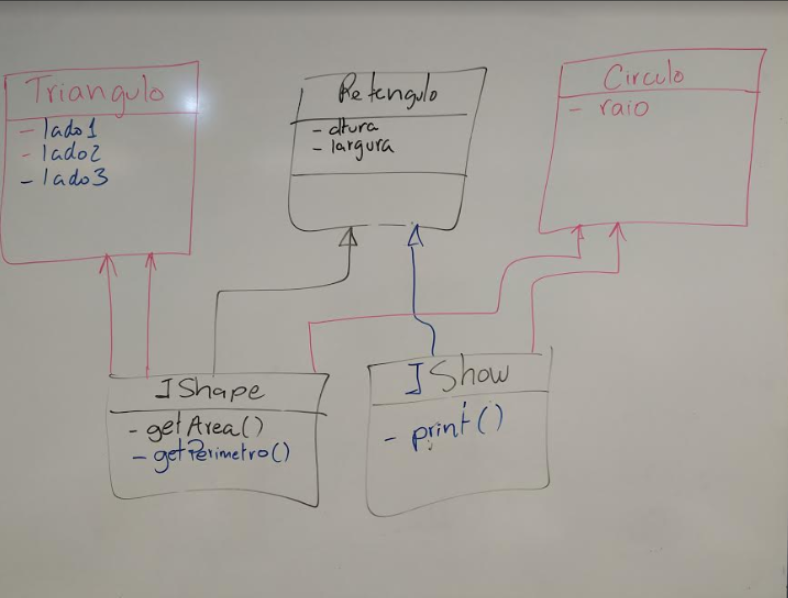 Triangulo
- lado1
- lado2
- lado3
Retengulo
- altura
- largura
Circulo
- raio
IShape
- getArea()
- getPerimetro()
IShow
- print()